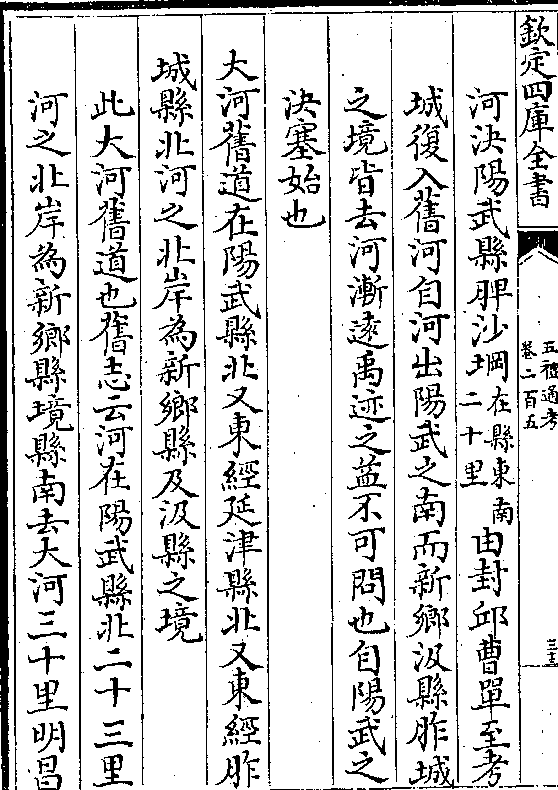 欽定四庫全書
五禮通考
卷二百五
三十三
河決陽武縣脾沙堈在縣東南二十里由封邱曹單至考
城復入舊河自河出陽武之南而新鄉汲縣胙城
之境皆去河漸逺禹迹之益不可問也自陽武之
決塞始也
大河舊道在陽武縣北又東經延津縣北又東經胙
城縣北河之北岸為新鄉縣及汲縣之境
此大河舊道也舊志云河在陽武縣北二十三里
河之北岸為新鄉縣境縣南去大河三十里明昌